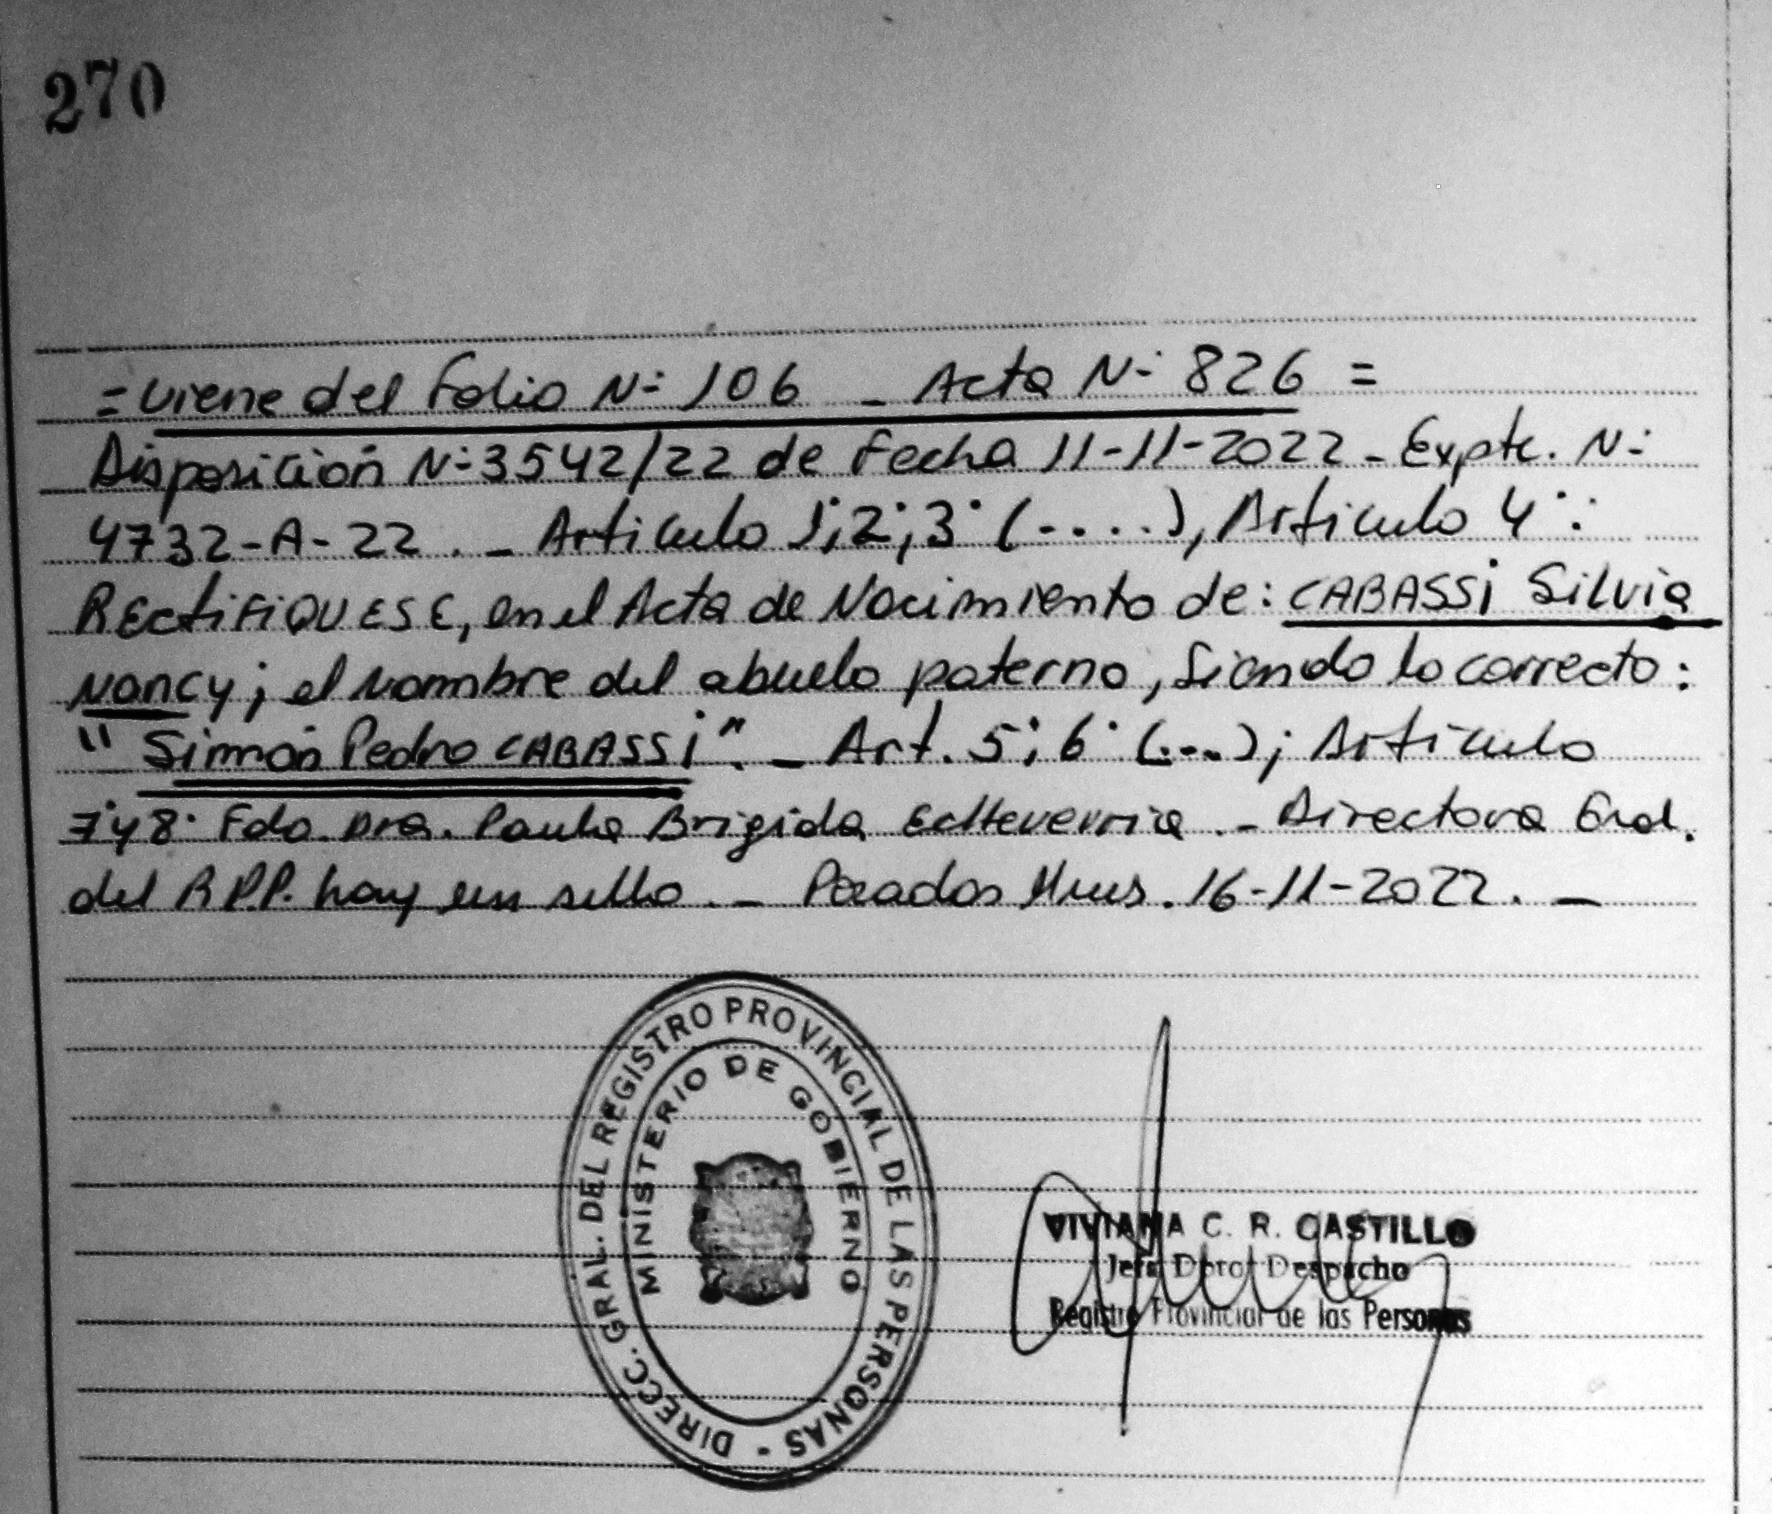 270
= Viene del Folio N: 106 _ Acta N: 826 =
Disposición N: 3542/22 de Fecha 11-11-2022 - Expte. N:
4732-A-22. _ Articulo 1;2;3° (-....), Articulo 4°:
RECtiFiQUESE, en el Acta de Nacimiento de: CABASSi Silvia
Nancy; el nombre del abuelo paterno, Siendo lo correcto:
"Simón Pedro CABASSi". _ Art. 5;6° (...); Articulo
7°y8° Fdo. Dra. Paula Brigida Echeverria. - Directora Gral.
del R.P.P. hay un sello. _ Posadas Mnes. 16-11-2022. _
DIRECC. GRAL. DEL REGISTRO PROVINCIAL DE LAS PERSONAS -
MINISTERIO DE GOBIERNO
VIVIANA C. R. CASTILLO
Jefa Dpto. Despacho
Registro Provincial de las Personas